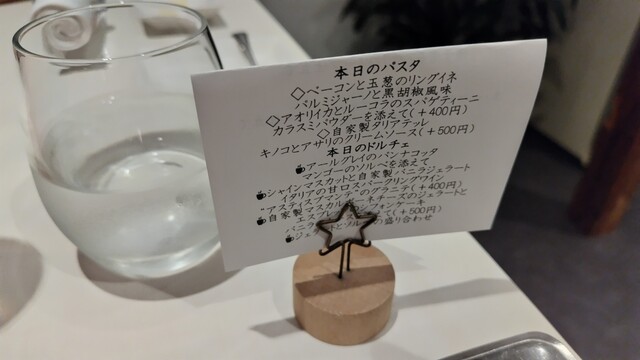 本日のパスタ
◇ベーコンと玉葱のリングイネ
パルミジャーノと黒胡椒風味
◇アオリイカとルーコラのスパゲティーニ
カラスミパウダーを添えて(+400円)
◇自家製タリアテッレ
キノコとアサリのクリームソース(+500円)
本日のドルチェ
アールグレイのパンナコッタ
マンゴーのソルベを添えて
シャインマスカットと自家製バニラジェラート
イタリアの甘口スパークリングワイン
"アスティスプマンテ"のグラニテ(+400円)
自家製マスカルポーネチーズのジェラートと
エスプ
シフォンケーキ
バニラ
て(+500円)
ジェラ
の盛り合わせ